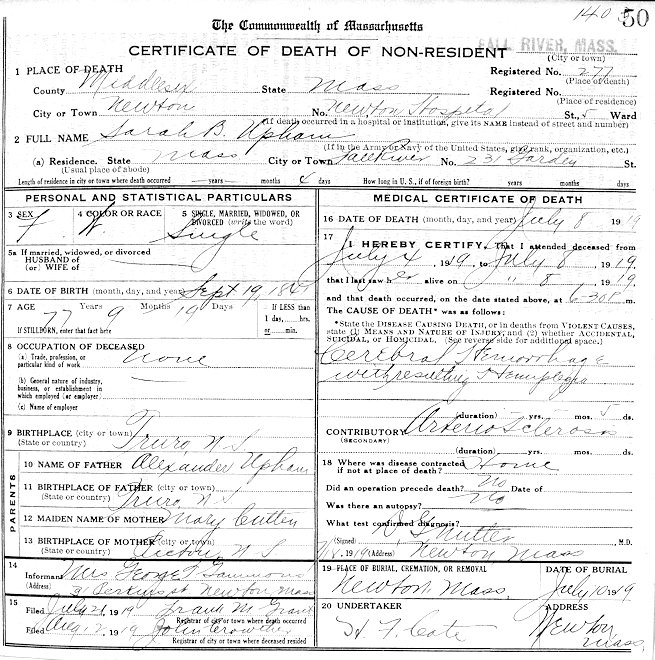 1403 50
The Commonwealth of Massachusetts
CERTIFICATE OF DEATH OF NON-RESIDENT
FALL RIVER, MASS.
(City or town)
1 PLACE OF DEATH
Registered No. 277
(Place of death)
County Middlesex State Mass
Registered No.
(Place of residence)
City or Town Newton No. Newton Hospital St., 5 Ward
(If death occurred in a hospital or institution, give its NAME instead of street and number)
2 FULL NAME Sarah B. Upham
(If in the Army or Navy of the United States, give rank, organization, etc.)
(a) Residence. State Mass City or Town Fall River No. 231 Garden St.
(Usual place of abode)
Length of residence in city or town where death occurred years months 4 days How long in U. S., if of foreign birth? years months days
PERSONAL AND STATISTICAL PARTICULARS
3 SEX
4 COLOR OR RACE
5 SINGLE, MARRIED, WIDOWED, OR
DIVORCED (write the word)
f W Single
5a If married, widowed, or divorced
HUSBAND of
(or) WIFE of
6 DATE OF BIRTH (month, day, and year) Sept 19, 18
7 AGE Years Months Days
77 9 19
If LESS than
1 day,......hrs.
or......min.
If STILLBORN, enter that fact here
8 OCCUPATION OF DECEASED
(a) Trade, profession, or
particular kind of work None
(b) General nature of industry,
business, or establishment in
which employed (or employer)
(c) Name of employer
9 BIRTHPLACE (city or town) Truro N S
(State or country)
PARENTS
10 NAME OF FATHER Alexander Upham
11 BIRTHPLACE OF FATHER (city or town)
(State or country) Truro, N S
12 MAIDEN NAME OF MOTHER Mary Cutten
13 BIRTHPLACE OF MOTHER (city or town)
(State or country) N S
14
Informant Mrs George T Gammons
(Address) Perkins st Newton Mass
15
Filed July 21, 1919 Frank M Grant
Registrar of city or town where death occurred
Filed Aug 12, 1919 John Crowther
Registrar of city or town where deceased resided
MEDICAL CERTIFICATE OF DEATH
16 DATE OF DEATH (month, day, and year) July 8 1919
17
I HEREBY CERTIFY, That I attended deceased from
July 4, 1919, to July 8, 1919,
that I last saw her alive on " 8, 1919
and that death occurred, on the date stated above, at 6-30 P m.
The CAUSE OF DEATH* was as follows:
*State the DISEASE CAUSING DEATH, or in deaths from VIOLENT CAUSES,
state (1) MEANS AND NATURE OF INJURY, and (2) whether ACCIDENTAL,
SUICIDAL, or HOMICIDAL. (See reverse side for additional space.)
Cerebral Hemorrhage
with resulting Hemiplegia
(duration) yrs. mos. 5 ds.
CONTRIBUTORY Arterio Sclerosis
(SECONDARY)
(duration) yrs. mos. ds.
18 Where was disease contracted
if not at place of death? Home
Did an operation precede death? No Date of
Was there an autopsy? No
What test confirmed diagnosis?
(Signed) Nutter M.D.
1919 (Address) Newton Mass
19 PLACE OF BURIAL, CREMATION, OR REMOVAL
Newton, Mass.
DATE OF BURIAL
July 10 1919
20 UNDERTAKER
H F Cate
ADDRESS
Newton
Mass.